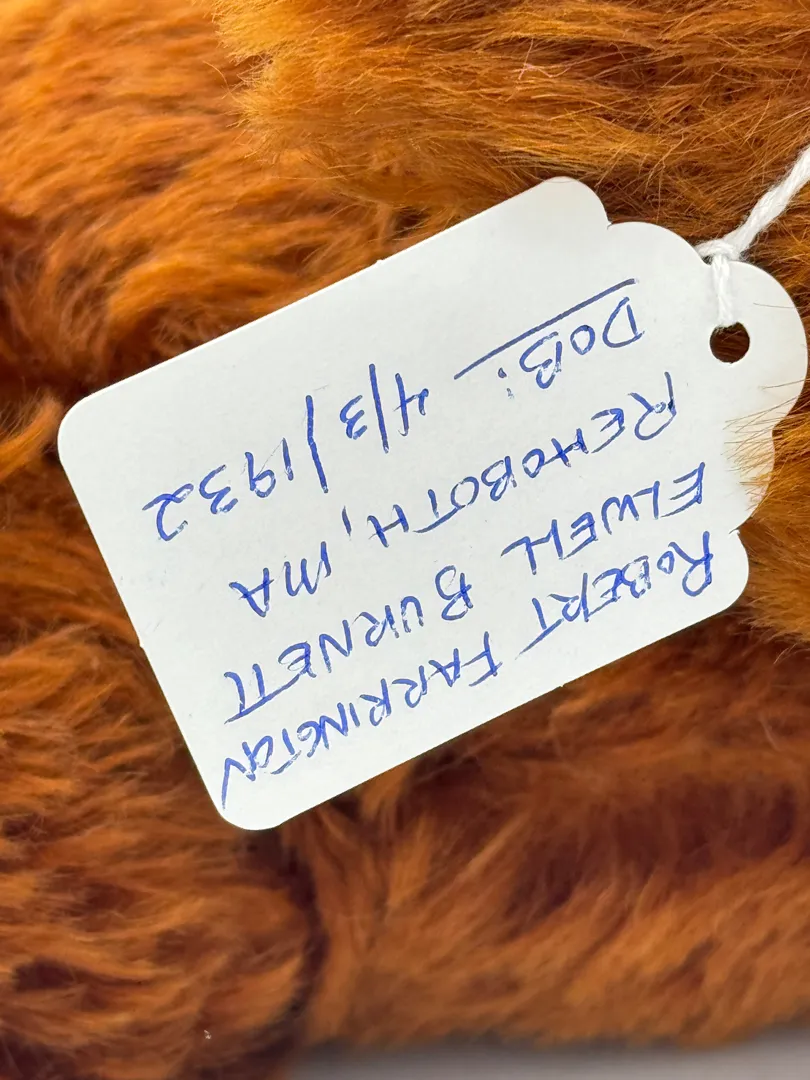 ROBERT FARRINGTON
ELWELL BURNETT
REHOBOTH, MA
DOB: 4/3/1932